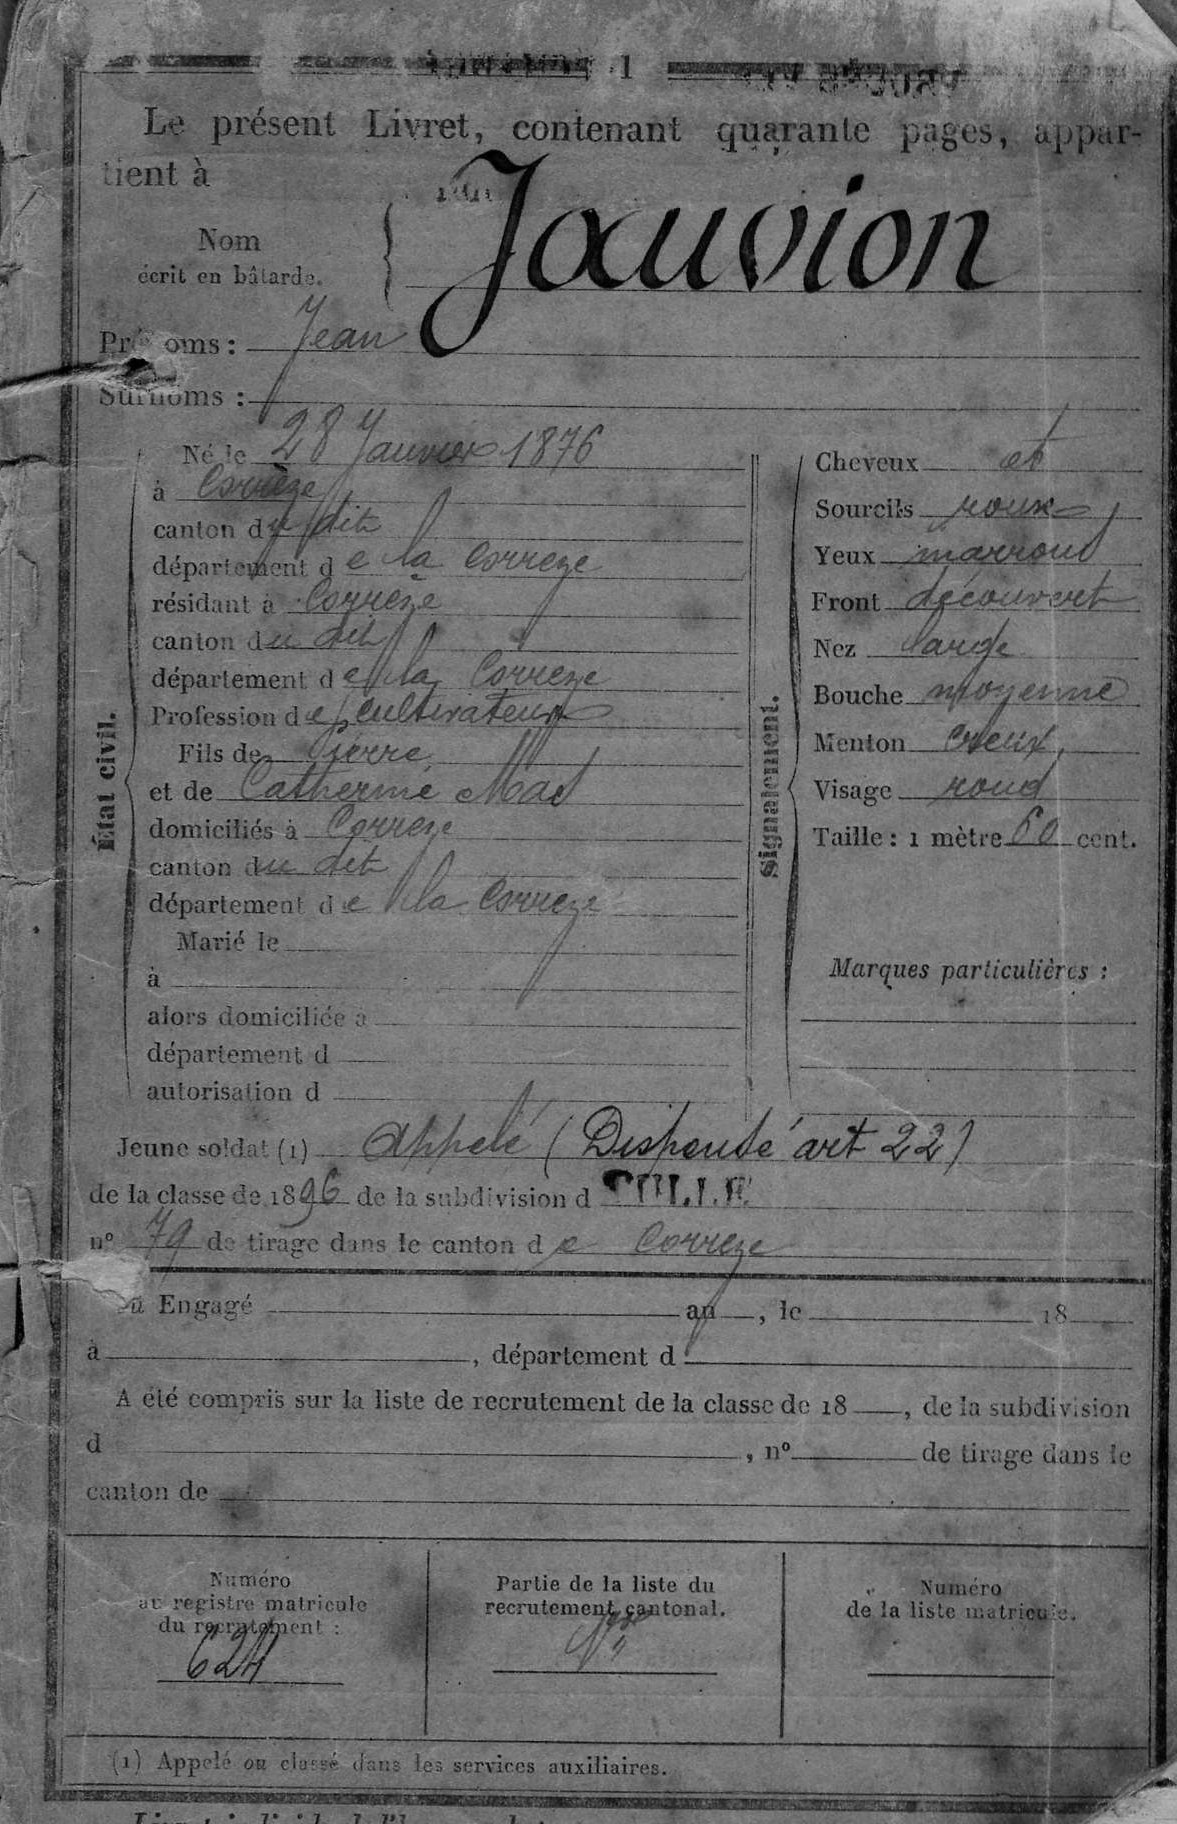 1
Le présent Livret, contenant quarante pages, appar-
tient à
Nom
écrit en bâtarde.
Jauvion
Prénoms : Jean
Surnoms :
Né le 28 Janvier 1876
à Corrèze
canton du dit
département de la Corrèze
résidant à Corrèze
canton du dit
département de la Corrèze
Profession de cultivateur
Fils de Pierre
et de Catherine Mas
domiciliés à Corrèze
canton du dit
département de la Corrèze
Marié le
à
alors domiciliée à
département d
autorisation d
État civil.
Signalement.
Cheveux et
Sourcils roux
Yeux marrons
Front découvert
Nez large
Bouche moyenne
Menton creux
Visage rond
Taille : 1 mètre 60 cent.
Marques particulières :
Jeune soldat (1) appelé (Dispensé art 22)
de la classe de 1896 de la subdivision d TULLE
n° 79 de tirage dans le canton de Corrèze
Engagé au , le 18
à , département d
A été compris sur la liste de recrutement de la classe de 18 , de la subdivision
d , n° de tirage dans le
canton de
Numéro
au registre matricule
du recrutement :
624
Partie de la liste du
recrutement cantonal.
Numéro
de la liste matricule.
(1) Appelé ou classé dans les services auxiliaires.